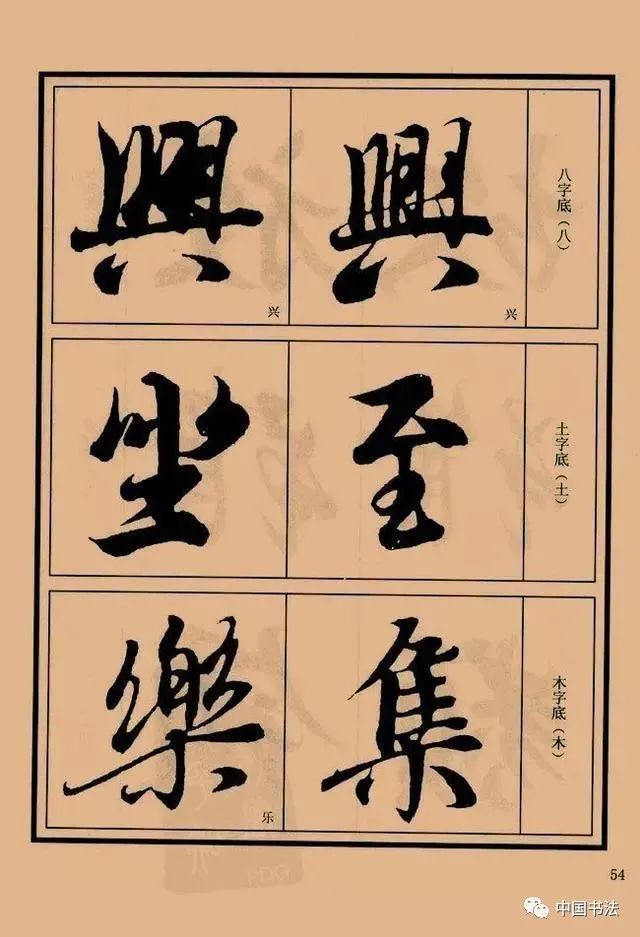 八字底（八）
興
兴
興
兴
土字底（土）
至
坐
木字底（木）
集
樂
乐
54
PDG
中国书法